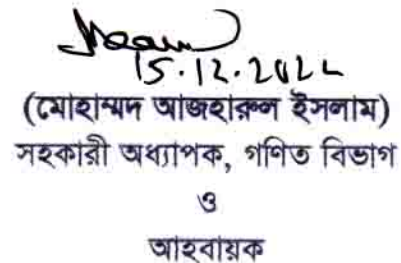 15.12.2022
(মোহাম্মদ আজহারুল ইসলাম)
সহকারী অধ্যাপক, গণিত বিভাগ
ও
আহবায়ক